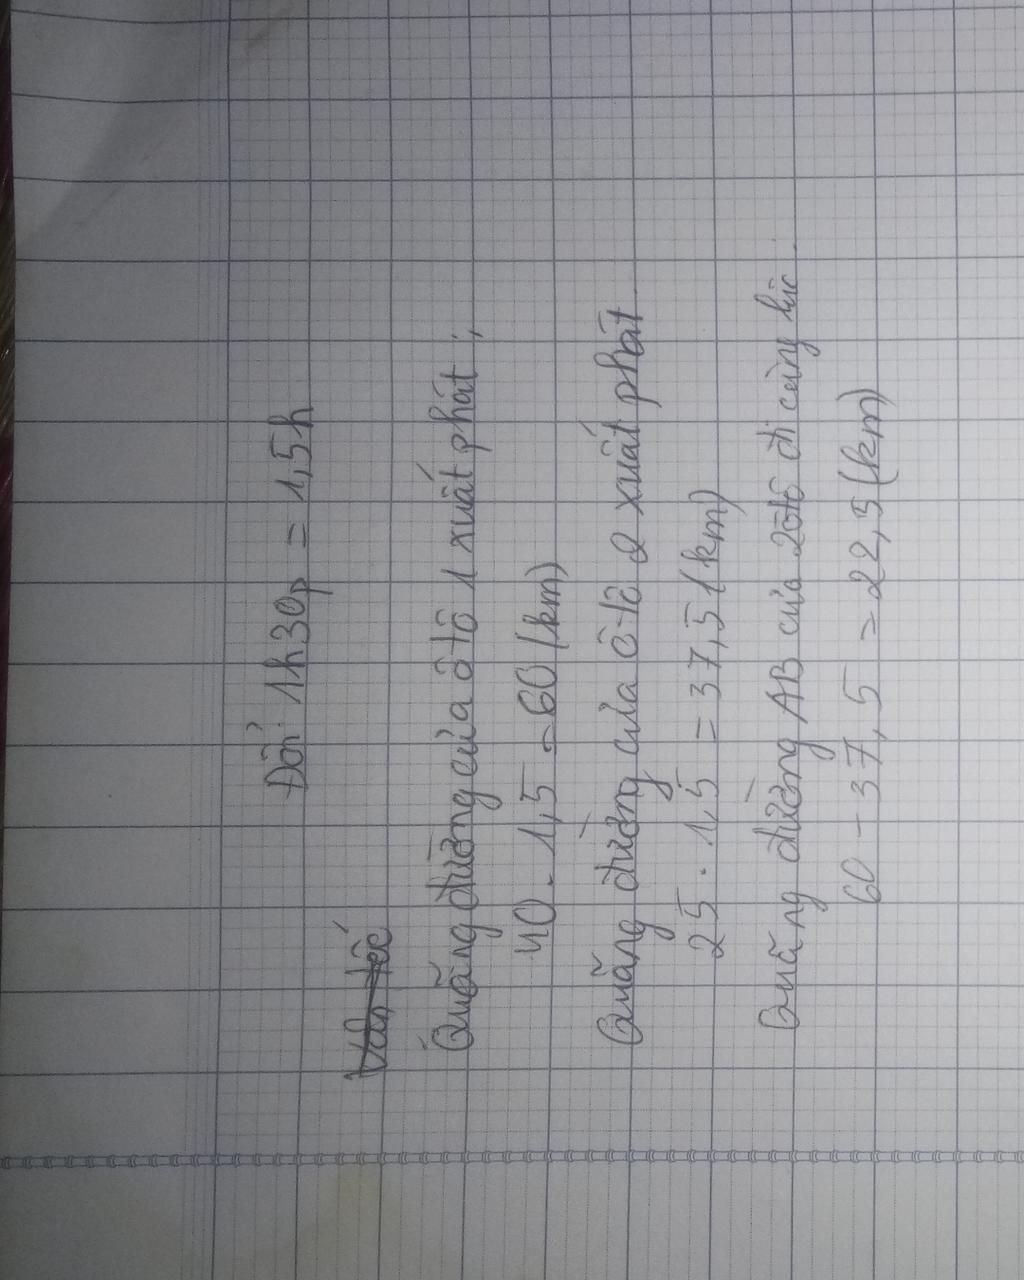 Đổi: 1h30p = 1,5h
Vận tốc
Quãng đường của ô tô 1 xuất phát;
40 . 1,5 = 60 (km)
Quãng đường của ô tô 2 xuất phát.
25 . 1,5 = 37,5 (km)
Quãng đường AB của 2 ô tô đi cùng lúc.
60 - 37,5 = 22,5 (km)